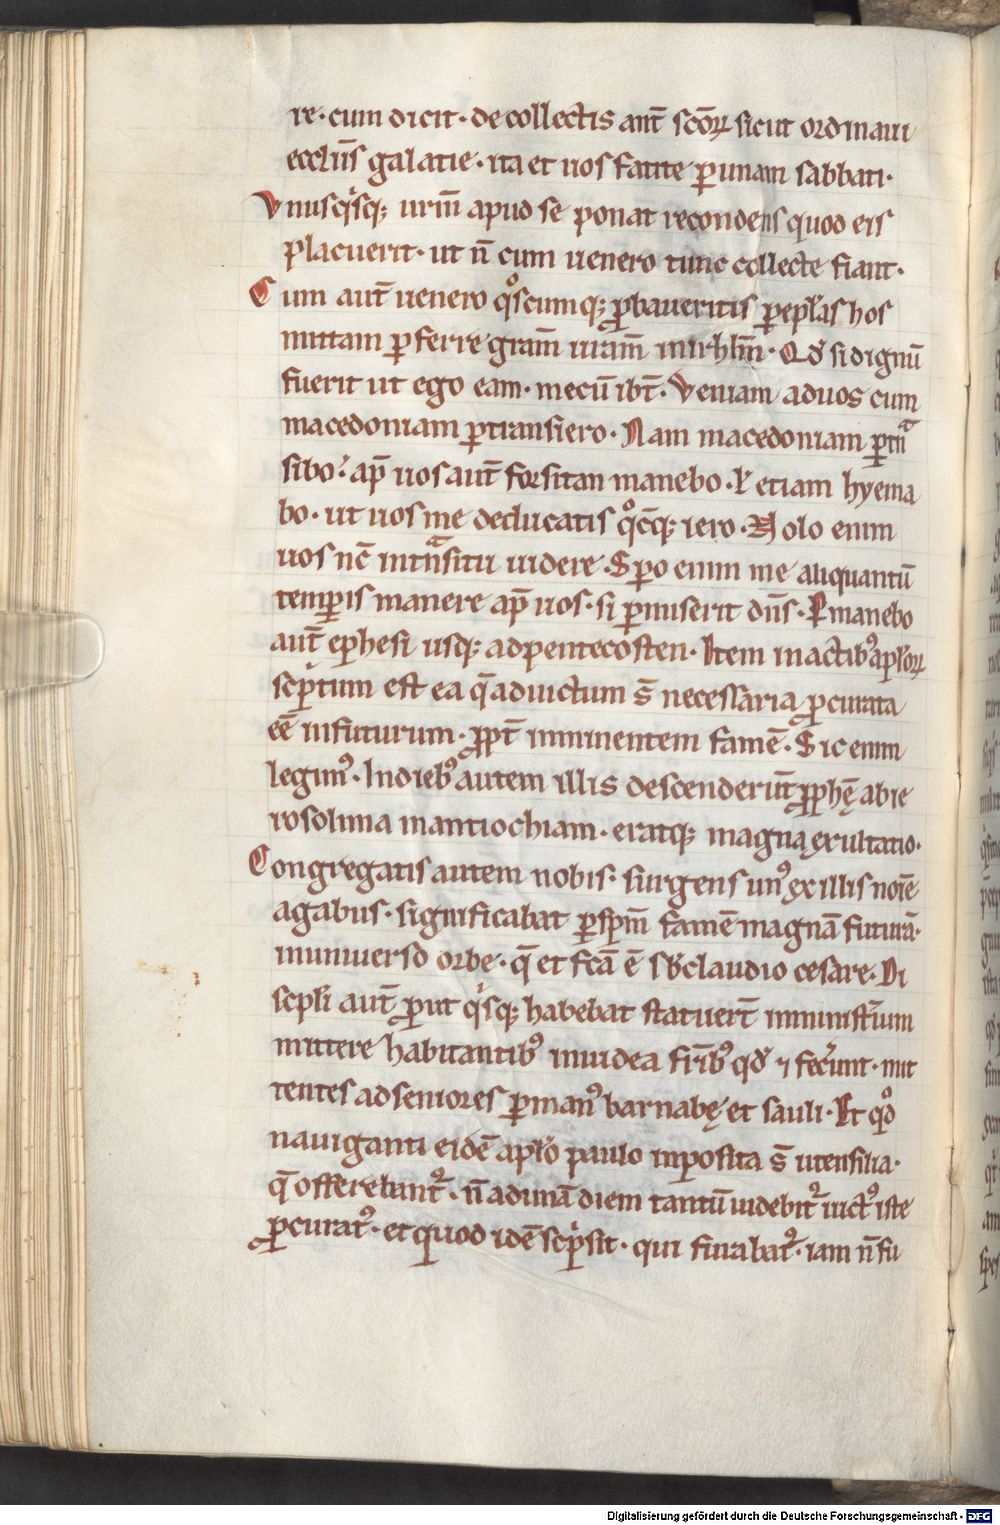 re· cum dicit· de collectis aut̄ sc̄oꝝ sicut ordinaui
eccl̄iis galatie· ita et uos facite ꝑ unam sabbati·
Vnusqͥsq; ur̄m apud se ponat recondens quod eis
placuerit· ut n̄ cum uenero tunc collecte fiant·
Cum aut̄ uenero qͦscumq; ꝓbaueritis ꝑ ep̄las hos
mittam ꝑferre gr̄am ur̄am in irhl̄m· Qd̓ si dignū
fuerit ut ego eam· mecū ibt̄· Veniam ad uos cum
macedoniam ꝑtransiero· Nam macedoniam ꝑtnͣ
sibo· ap̄ uos aut̄ forsitan manebo· ł etiam hyema
bo· ut uos me deducatis qͦcq; iero· Nolo enim
uos nc̄ in tnͣsitu uidere· Spo enim me aliquantū
temꝑis manere ap̄ uos· si ꝑmiserit dn̄s· Pmanebo
aut̄ ephesi usq; ad pentecosten· Item in actibꝰ aplōꝝ
scͥptum est ea q̄ ad uictum s̄ necessaria ꝓcurata
eē in futurum· ꝓpt̄ imminentem famē· Sic enim
legimꝰ· In diebꝰ autem illis descenderūt ꝓphę ab ie
rosolima in antiochiam· eratq; magna exultatio·
Congregatis autem nobis· surgens unꝰ ex illis noīe
agabus· significabat ꝑ sp̄m famē magnā futurā·
in uniuerso orbe· q̄ et fc̄a ē sb̓ claudio cesare· Di
scipl̓i aut̄ ꝓut qͥsq; habebat statuer̄t in minist̓ium
mittere habitantibꝰ in iudea fr̄ibꝰ qd̓ ⁊ fec̓unt· mit
tentes ad seniores ꝑ manꝰ barnabę et sauli· Et qͦd
nauiganti eidē aplō paulo imposita s̄ utensilia·
q̄ offerebant᷑· n̄ ad unā diem tantū uidebit᷑ uictꝰ iste
ꝓcuratꝰ· et quod idē scͥpsit· qui furabat᷑· iam n̄ fu
Digitalisierung gefördert durch die Deutsche Forschungsgemeinschaft - DFG